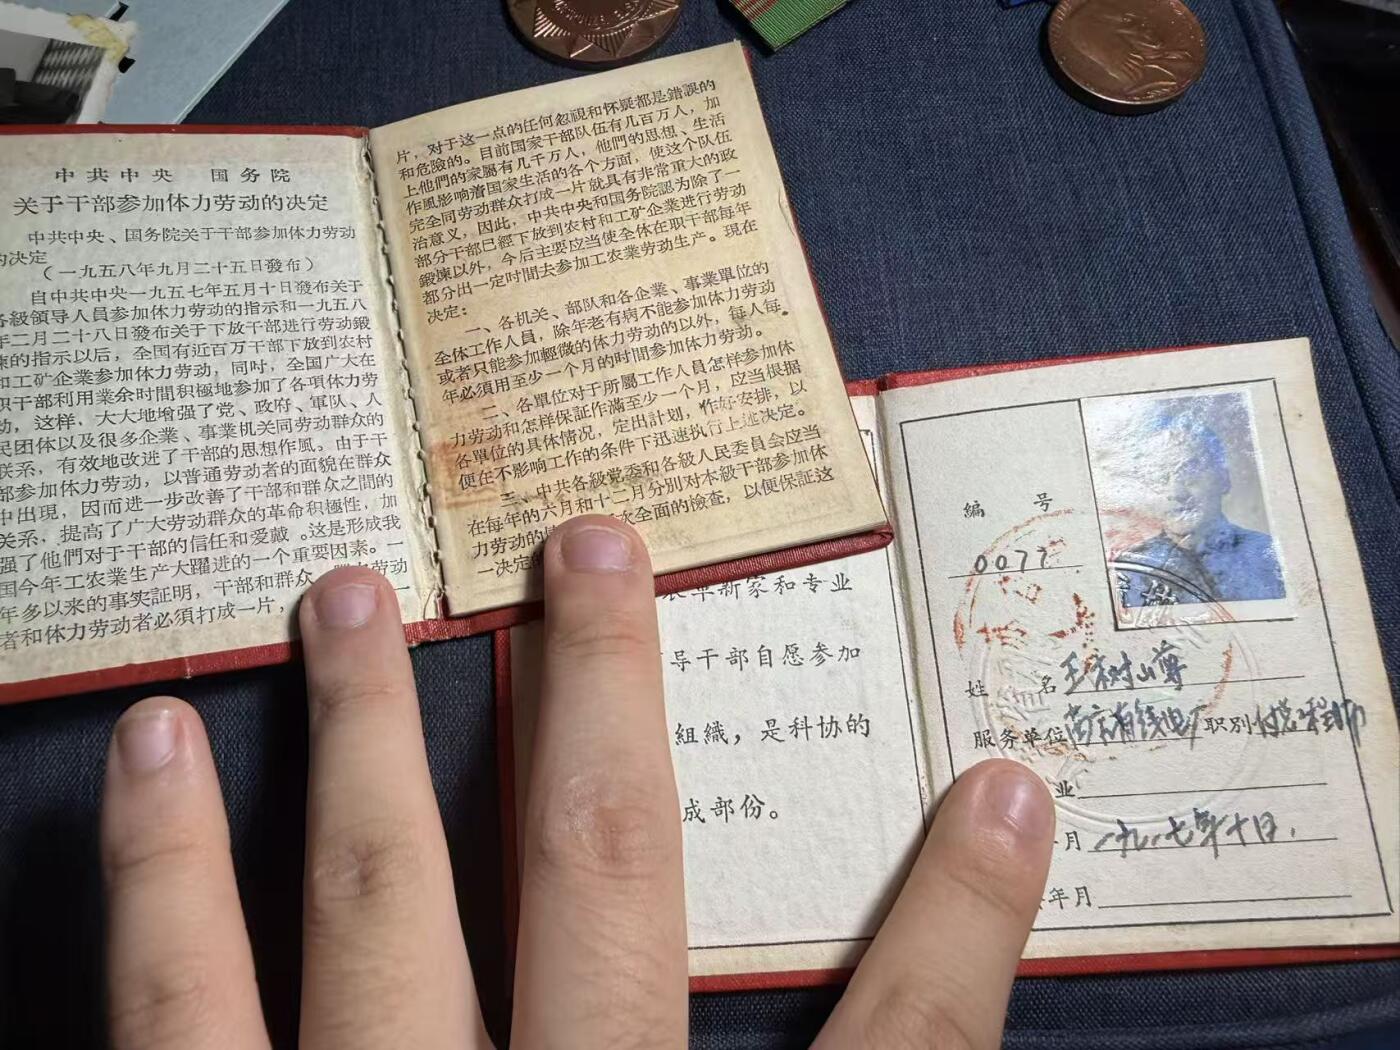 中共中央 国务院
关于干部参加体力劳动的决定
中共中央、国务院关于干部参加体力劳动
的决定
（一九五八年九月二十五日發布）
自中共中央一九五七年五月十日發布关于
各級領导人員参加体力劳动的指示和一九五八
年二月二十八日發布关于下放干部进行劳动鍛
煉的指示以后，全国有近百万干部下放到农村
和工矿企業参加体力劳动，同时，全国广大在
职干部利用業余时間积極地参加了各項体力劳
动，这样，大大地增强了党、政府、軍队、人
民团体以及很多企業、事業机关同劳动群众的
联系，有效地改进了干部的思想作風。由于干
部参加体力劳动，以普通劳动者的面貌在群众
中出現，因而进一步改善了干部和群众之間的
关系，提高了广大劳动群众的革命积極性，加
强了他們对于干部的信任和爱戴。这是形成我
国今年工农業生产大躍进的一个重要因素。一
年多以来的事实証明，干部和群众、劳动
者和体力劳动者必須打成一片，一
片，对于这一点的任何忽視和怀疑都是錯誤的
和危險的。目前国家干部队伍有几百万人，加
上他們的家屬有几千万人，他們的思想、生活
作風影响着国家生活的各个方面，使这个队伍
完全同劳动群众打成一片就具有非常重大的政
治意义，因此，中共中央和国务院認为除了一
部分干部已經下放到农村和工矿企業进行劳动
鍛煉以外，今后主要应当使全体在职干部每年
都分出一定时間去参加工农業劳动生产。現在
决定：
一、各机关、部队和各企業、事業單位的
全体工作人員，除年老有病不能参加体力劳动
或者只能参加輕微的体力劳动的以外，每人每
年必須用至少一个月的时間参加体力劳动。
二、各單位对于所屬工作人員怎样参加体
力劳动和怎样保証作滿至少一个月，应当根据
各單位的具体情况，定出計划，作好安排，以
便在不影响工作的条件下迅速执行上述决定。
三、中共各級党委和各級人民委員会应当
在每年的六月和十二月分別对本級干部参加体
力劳动的次全面的檢查，以便保証这
一决定
革新家和专业
导干部自愿参加
組織，是科协的
成部份。
編 号
0077
姓 名 王树山尊
服务单位 南京有线电厂 职別 付总工程师
业
月 一九一七年十日.
年月